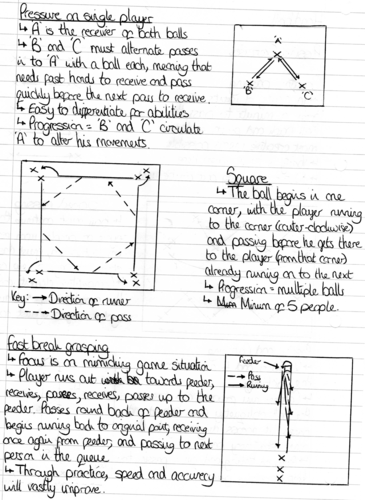 Pressure on single player
↳ 'A' is the receiver of both balls
↳ 'B' and 'C' must alternate passes
in to 'A' with a ball each, meaning that
needs fast hands to receive and pass
quickly before the next pass to receive.
↳ Easy to differentiate for abilities
↳ Progression = 'B' and 'C' circulate
'A' to alter his movements.
'A'
'B'
'C'
Square
↳ The ball begins in one
corner, with the player running
to the corner (couter-clockwise)
and passing before he gets there
to the player (from that corner)
already running on to the next
↳ Progression = multiple balls
↳ Minium of 5 people.
Key: → Direction of runner
--→ Direction of pass
Fast break grasping
↳ Focus is on mimicking game situation
↳ Player runs out towards feeder,
receives, passes, receives, passes up to the
feeder. Passes round back of feeder and
begins running back to original point, receiving
once again from feeder, and passing to next
person in the queue.
↳ Through practice, speed and accuracy
will vastly improve.
Feeder
Pass
Running